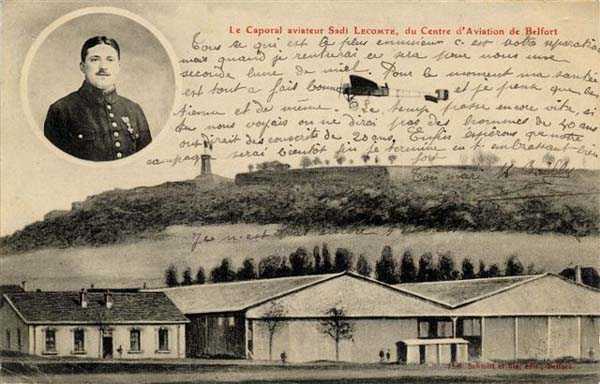 Le Caporal aviateur Sadi LECOMTE, du Centre d'Aviation de Belfort
Tous ce qui est le plus ennuieux c est votre separation
mais quand je rentrerai ce sera pour nous une
seconde lune de miel. Pour le moment ma santée
est tout a fait bonne et je pense que la
tienne et de même. Le temps passe encore vite, si
tu nous voyais on ne dirai pas des hommes de 40 ans
on dirait des conscrits de 20 ans. Enfin espérons que notre
campagne serai bientôt fini je termine en t embrattant bien
fort
Schmitt et Cie, édit., Belfort.